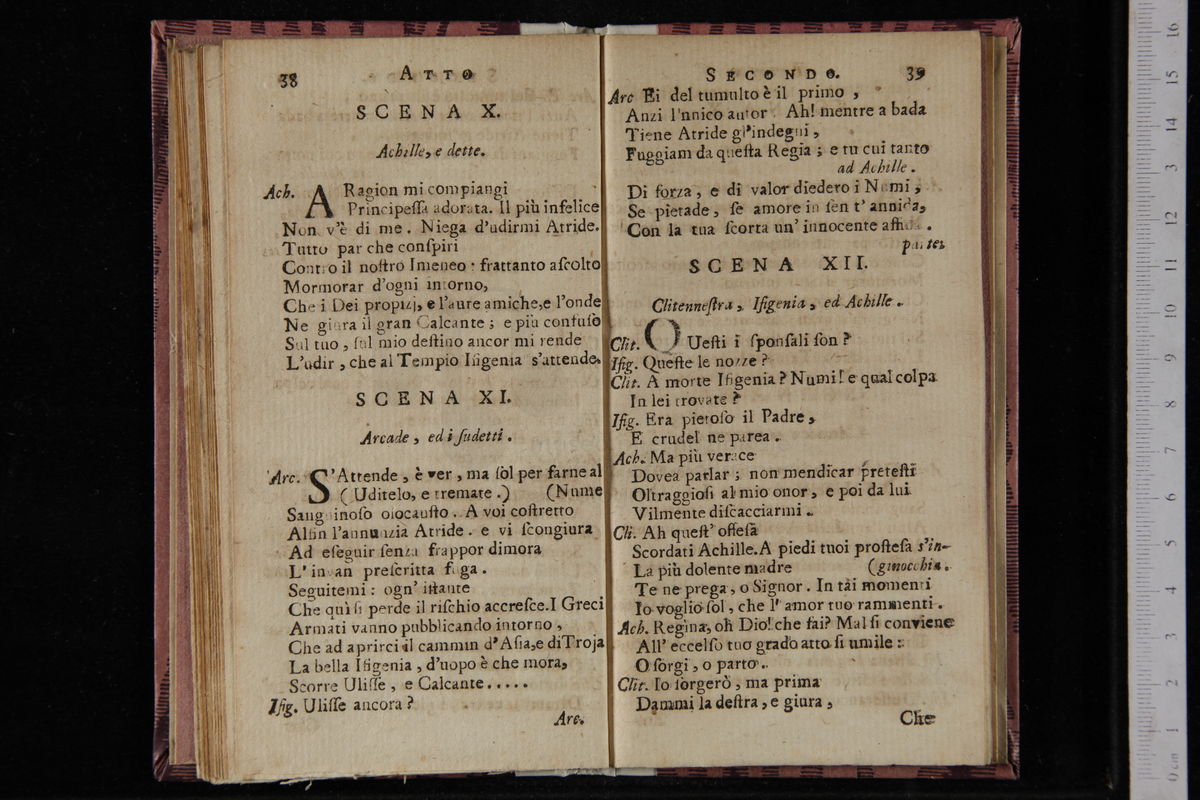 38
ATTO
SCENA X.
Achille, e dette.
Ach. A Ragion mi compiangi
Principeſſa adorata. Il più infelice
Non v'è di me. Niega d'udirmi Atride.
Tutto par che conſpiri
Contro il noſtro Imeneo: frattanto aſcolto
Mormorar d'ogni intorno,
Che i Dei propizj, e l'aure amiche, e l'onde
Ne giura il gran Calcante; e più confuſo
Sul tuo, ſul mio deſtino ancor mi rende
L'udir, che al Tempio Ifigenia s'attende.
SCENA XI.
Arcade, ed i ſudetti.
Arc. S'Attende, è ver, ma ſol per farne al
(Uditelo, e tremate.) (Nume
Sanguinoſo olocauſto. A voi coſtretto
Alfin l'annunzia Atride. e vi ſcongiura
Ad eſeguir ſenza frappor dimora
L'invan preſcritta fuga.
Seguitemi: ogn' iſtante
Che quì ſi perde il riſchio accreſce. I Greci
Armati vanno pubblicando intorno,
Che ad aprirci il cammin d'Aſia, e di Troja
La bella Ifigenia, d'uopo è che mora,
Scorre Uliſſe, e Calcante.....
Ifig. Uliſſe ancora?
Arc.
SECONDO.
39
Arc Ei del tumulto è il primo,
Anzi l'nnico autor. Ah! mentre a bada
Tiene Atride gl'indegni,
Fuggiam da queſta Regia; e tu cui tanto
ad Achille.
Di forza, e di valor diedero i Numi,
Se pietade, ſe amore in ſen t'annida,
Con la tua ſcorta un' innocente affida.
parte.
SCENA XII.
Clitenneſtra, Ifigenia, ed Achille.
Clit. QUeſti i ſponſali ſon?
Ifig. Queſte le nozze?
Clit. A morte Ifigenia? Numi! e qual colpa
In lei trovate?
Ifig. Era pietoſo il Padre,
E crudel ne parea.
Ach. Ma più verace
Dovea parlar; non mendicar preteſti
Oltraggioſi al mio onor, e poi da lui
Vilmente diſcacciarmi.
Cli. Ah queſt' offeſa
Scordati Achille. A piedi tuoi proſteſa s'in-
La più dolente madre (ginocchia.
Te ne prega, o Signor. In tài momenti
Io voglio ſol, che l'amor tuo rammenti.
Ach. Regina, oh Dio! che fai? Mal ſi conviene
All' eccelſo tuo grado atto ſi umile:
O ſorgi, o parto.
Clit. Io ſorgerò, ma prima
Dammi la deſtra, e giura,
Che
0 cm 1 2 3 4 5 6 7 8 9 10 11 12 13 14 15 16